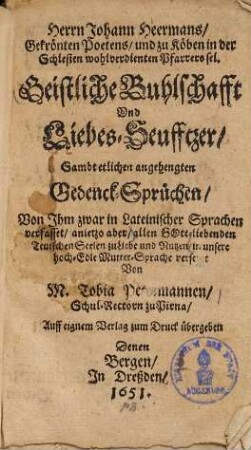 Herrn Johann Heermans/
Gekrönten Poetens/ und zu Köben in der
Schlesien wohlverdienten Pfarrers sel.
Geistliche Buhlschafft
Und
Liebes-Seufftzer/
Sambt etlichen angehengten
Gedenck-Sprüchen/
Von Ihm zwar in Lateinischer Sprachen
verfasset/ anietzo aber/ allen GOtt-liebenden
Teutschen Seelen zu Liebe und Nutzen/ in unsere
hoch-Edle Mutter-Sprache
Von
M. Tobia
Schul-Rectorn zu Pirna/
Auff eignem Verlag zum Druck übergeben
Denen
Bergen/
In Dreßden/
1651.